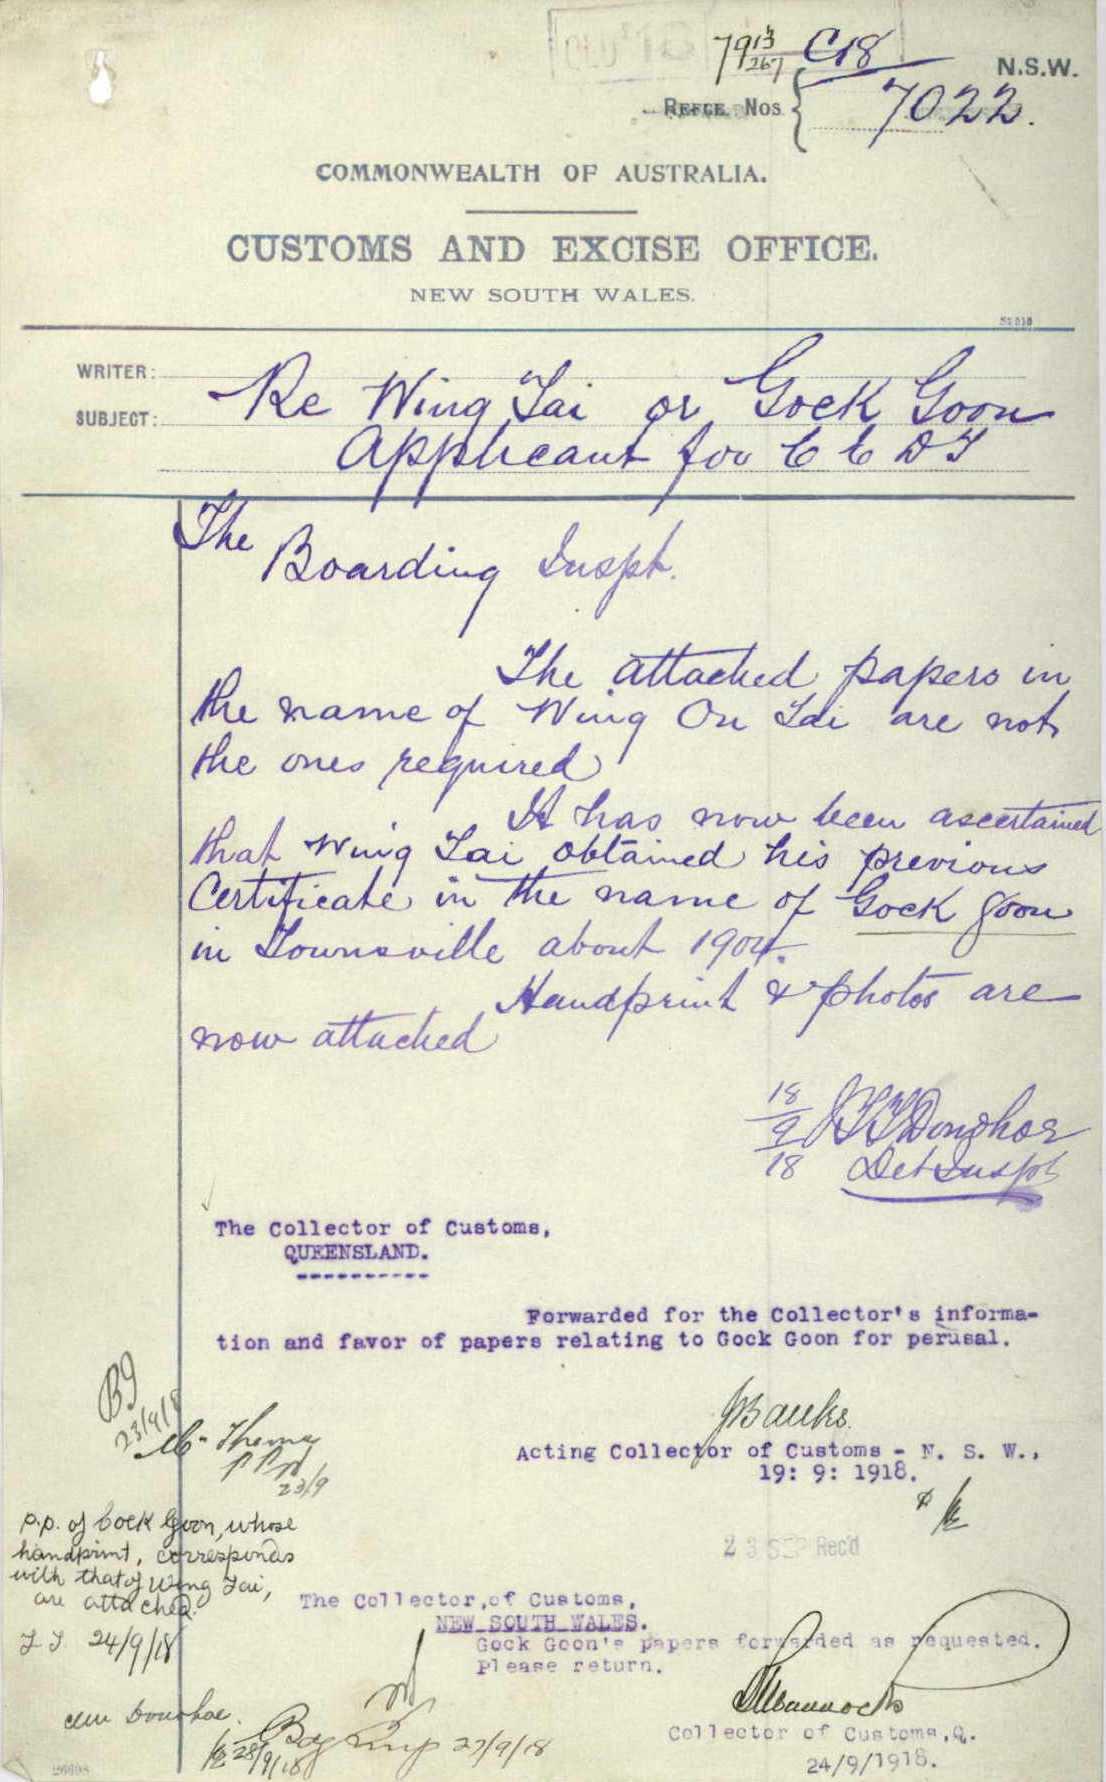 79 13/267 C18
N.S.W.
Refce. Nos
7022.
COMMONWEALTH OF AUSTRALIA.
CUSTOMS AND EXCISE OFFICE.
NEW SOUTH WALES.
WRITER:
SUBJECT:
Re Wing Tai or Gock Goon
Applicant for C E D T
The
Boarding Inspt.
The attached papers in
the name of Wing On Tai are not
the ones required
It has now been ascertained
that Wing Tai obtained his previous
Certificate in the name of Gock Goon
in Townsville about 1904.
Handprint & photos are
now attached
18/9/18 Donohoe
Det Inspt
The Collector of Customs,
QUEENSLAND.
Forwarded for the Collector's informa-
tion and favor of papers relating to Gock Goon for perusal.
JBanks.
Acting Collector of Customs - N. S. W.,
19: 9: 1918.
23 SEP Rec'd
23/9/18
Mr Thomas
23/9
p.p. of Gock Goon, whose
handprint, corresponds
with that of Wing Tai,
are attached.
24/9/18
The Collector, of Customs,
NEW SOUTH WALES.
Gock Goon's papers forwarded as requested.
Please return.
Collector of Customs, Q.
24/9/1918.
Donohoe.
28/9/18
27/9/18